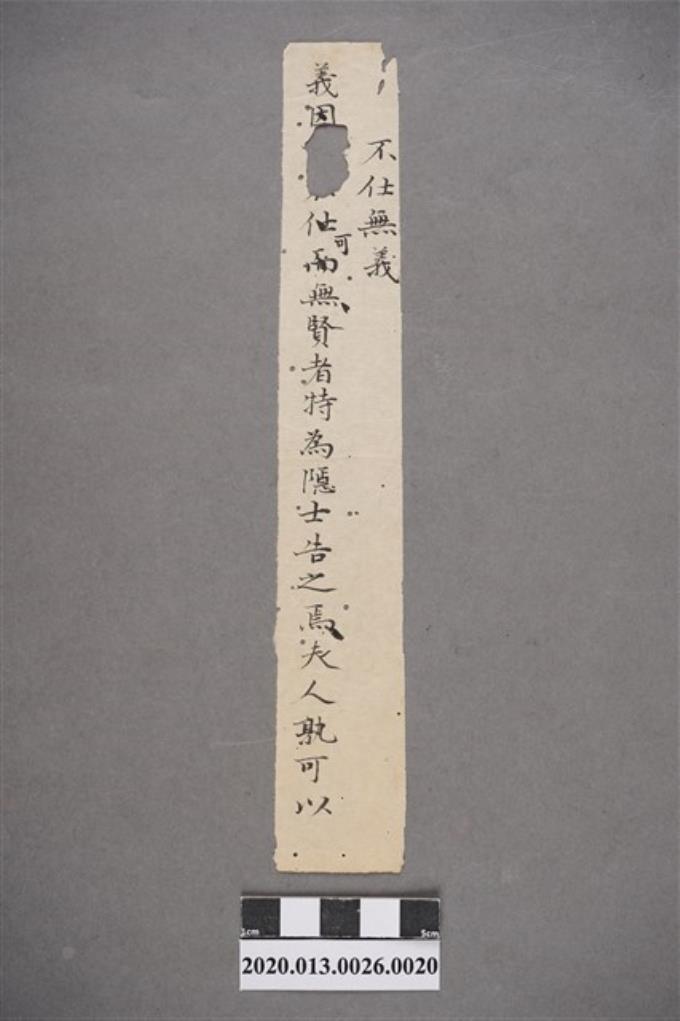 不仕無義
義因仕而可無賢者特為隱士告之焉夫人孰可以
1cm 5cm
2020.013.0026.0020